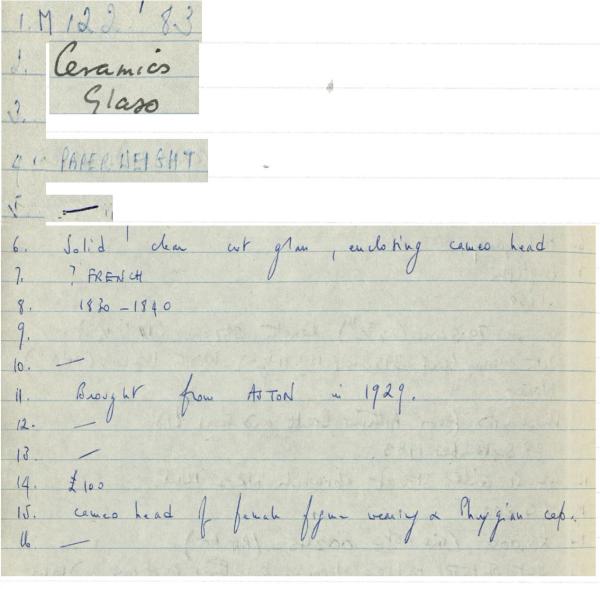 1. M 122 ' 83
2. Ceramics
Glass
3.
4. PAPERWEIGHT
5. —
6. Solid clear cut glass, enclosing cameo head
7. ? FRENCH
8. 1830 - 1840
9.
10. —
11. Brought from ASTON in 1929.
12. —
13. —
14. £100
15. cameo head of female figure wearing a Phrygian cap.
16 —